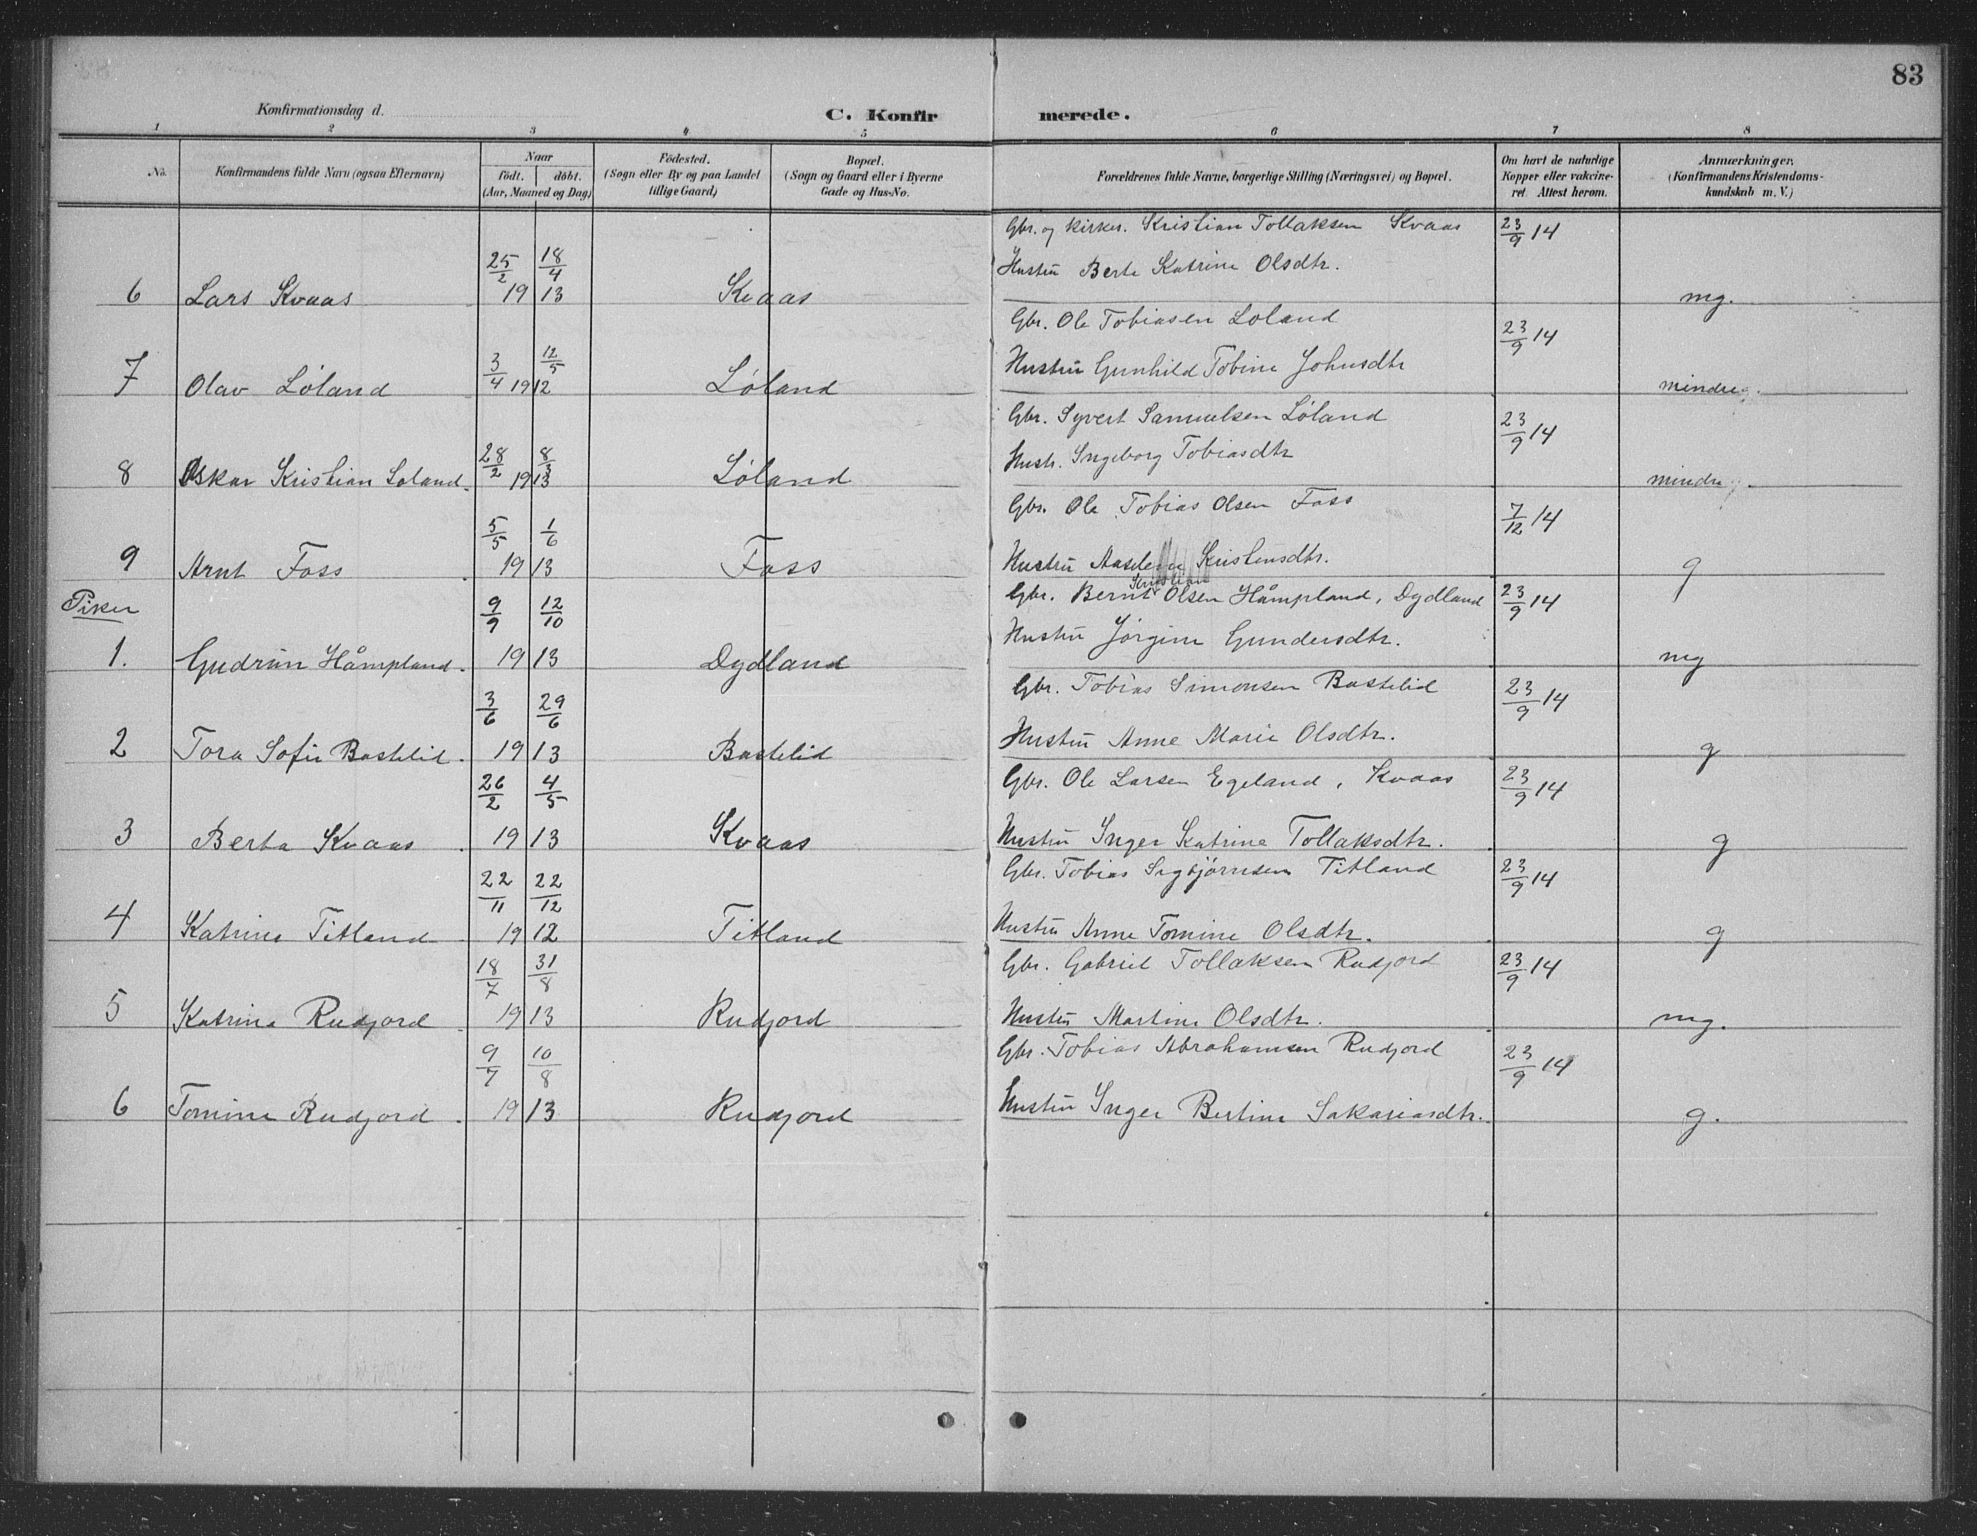 83
Konfirmationsdag d.
C. Konfirmerede.
1 2 3 4 5 6 7 8
No. Konfirmandens fulde Navn (ogsaa Efternavn) Naar født. døbt. (Aar, Maaned og Dag) Fødested. (Sogn eller By og paa Landet tillige Gaard) Bopæl. (Sogn og Gaard eller i Byerne Gade og Hus-No. Forældrenes fulde Navne, borgerlige Stilling (Næringsvei) og Bopæl. Om havt de naturlige Kopper eller vakcineret. Attest herom. Anmærkninger. (Konfirmandens Kristendomskundskab m. V.)
Gbr. og kirkes. Kristian Tollaksen Kvaas 23/9 14
25/2 18/4 Hustru Berte Katrine Olsdtr.
6 Lars Kvaas 19 13 Kvaas mg.
Gbr. Ole Tobiasen Løland 23/9 14
3/4 12/5 Hustru Gunhild Tobine Johnsdtr
7 Olav Løland 19 12 Løland mindre g.
Gbr. Syvert Samuelsen Løland 23/9 14
28/2 8/3 Hustr. Ingeborg Tobiasdtr
8 Oskar Kristian Løland. 19 13 Løland mindre g.
Gbr. Ole Tobias Olsen Foss 7/12 14
5/5 1/6
9 Arnt Foss 19 13 Foss Hustru Kristensdtr. g
Piker
Kristian
9/9 12/10 Gbr. Bernt Olsen Håmpland, Dydland 23/9 14
Hustru Jørgine Gundersdtr.
1. Gudrun Håmpland. 19 13 Dydland mg
3/6 29/6 Gbr. Tobias Simonsen Bastelid 23/9 14
Hustru Anne Marie Olsdtr.
2 Tora Sofie Bastelid. 19 13 Bastelid g
26/2 4/5 Gbr. Ole Larsen Egeland, Kvaas 23/9 14
3 Berta Kvaas 19 13 Kvaas Hustru Inger Katrine Tollaksdtr. g
22/11 22/12 Gbr. Tobias Sigbjørnsen Titland 23/9 14
4 Katrine Titland 19 12 Titland Hustru Anne Tomine Olsdtr. g
18/7 31/8 Gbr. Gabriel Tollaksen Rudjord 23/9 14
5 Katrine Rudjord 19 13 Rudjord Hustru Martine Olsdtr. mg.
9/7 10/8 Gbr. Tobias Abrahamsen Rudjord 23/9 14
6 Tomine Rudjord. 19 13 Rudjord Hustru Inger Bertine Sakariasdtr. g.